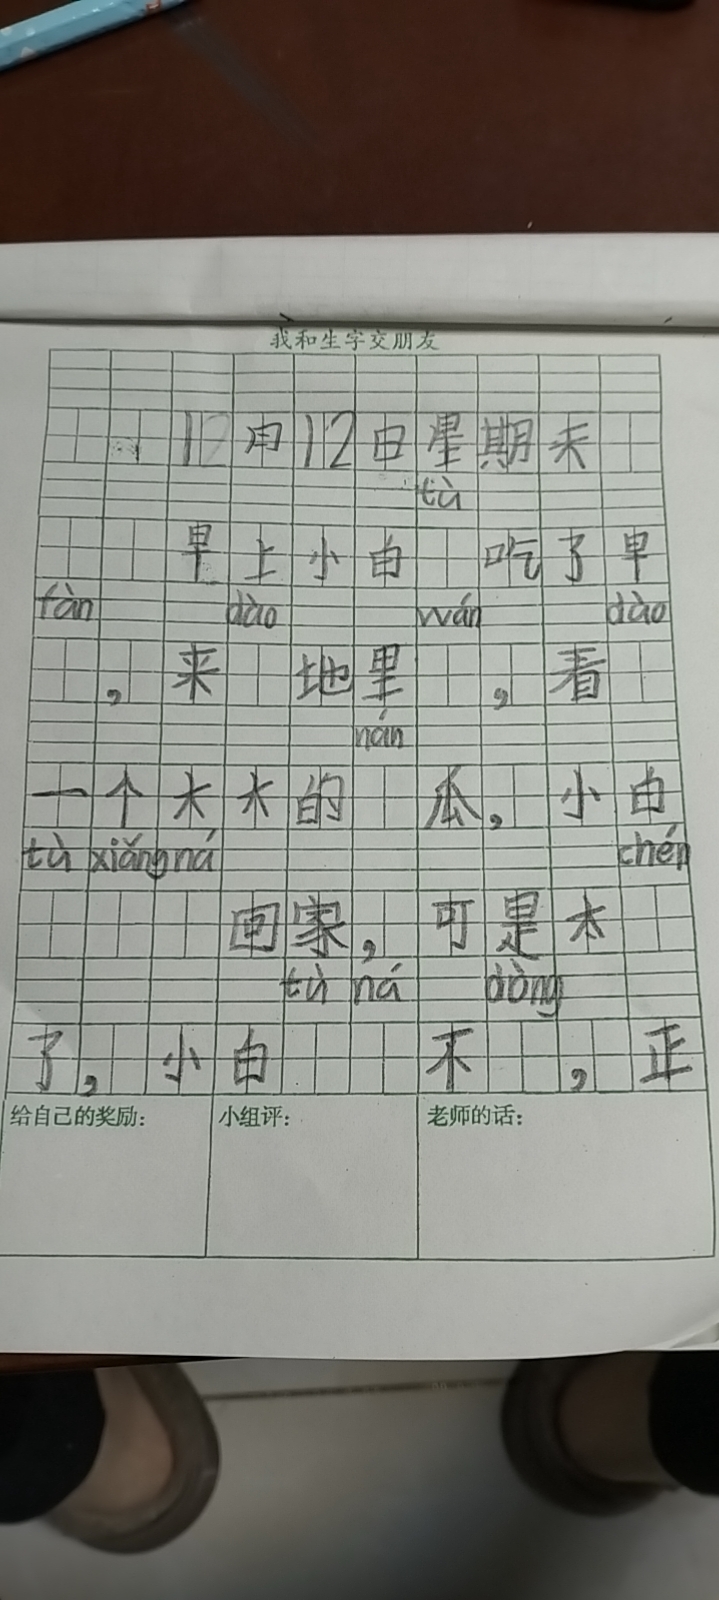 我和生字交朋友
12月12日星期天
tù
早上小白 吃了早
fàn dào wán dào
，来 地里 ，看
nán
一个大大的 瓜，小白
tù xiǎng ná chén
回家，可是太
tù ná dòng
了，小白 不 ，正
给自己的奖励：
小组评：
老师的话：